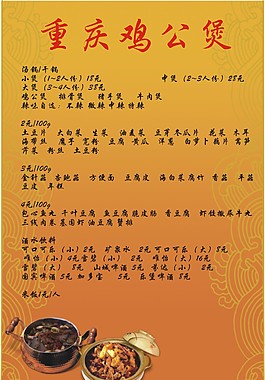 重庆鸡公煲
汤锅/干锅
小煲（1~2人份）18元 中煲（2~3人份）28元
大煲（3~4人份）38元
鸡公煲 排骨煲 猪手煲 牛肉煲
辣味自选：不辣 微辣 中辣 特辣
2元/100g
土豆片 大白菜 生菜 油麦菜 豆芽 冬瓜片 木耳
海带丝 魔芋 宽粉 豆腐 黄瓜 洋葱 白萝卜 藕片 莴笋
芹菜 粉丝 土豆粉
3元/100g
金针菇 杏鲍菇 方便面 豆腐皮 海白菜 腐竹 香菇 平菇
豆皮 年糕
4元/100g
包心鱼丸 千叶豆腐 鱼豆腐 脆皮肠 青豆腐 虾饺 撒尿牛丸
三线肉卷 基围虾 油豆腐 蟹排
酒水饮料
可口可乐（小）2元 矿泉水 2元 可口可乐（大）8元
雪碧（小）2元 （大）16元
雪碧（大）8元 山城啤酒 5元 （小）2元
国宾啤酒 5元 加多宝 5元 啤酒 8元
米饭1元/1人